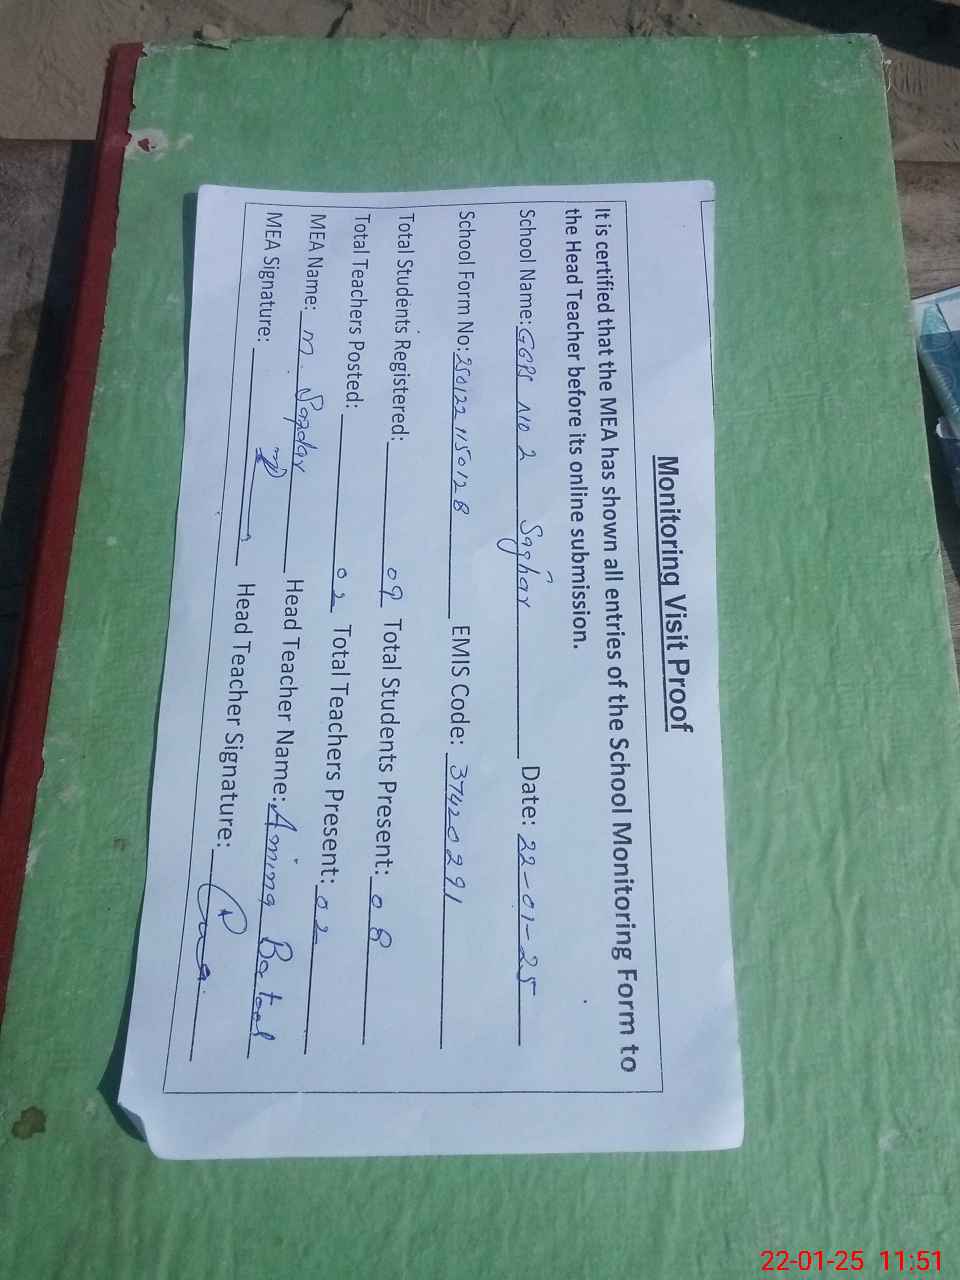 Monitoring Visit Proof
It is certified that the MEA has shown all entries of the School Monitoring Form to
the Head Teacher before its online submission.
School Name: GGPS No 2 Saghar Date: 22-01-25
School Form No: 250122115012B EMIS Code: 37420291
Total Students Registered: 09 Total Students Present: 08
Total Teachers Posted: 02 Total Teachers Present: 02
MEA Name: M. Safdar Head Teacher Name: Amina Batool
MEA Signature: Head Teacher Signature:
22-01-25 11:51